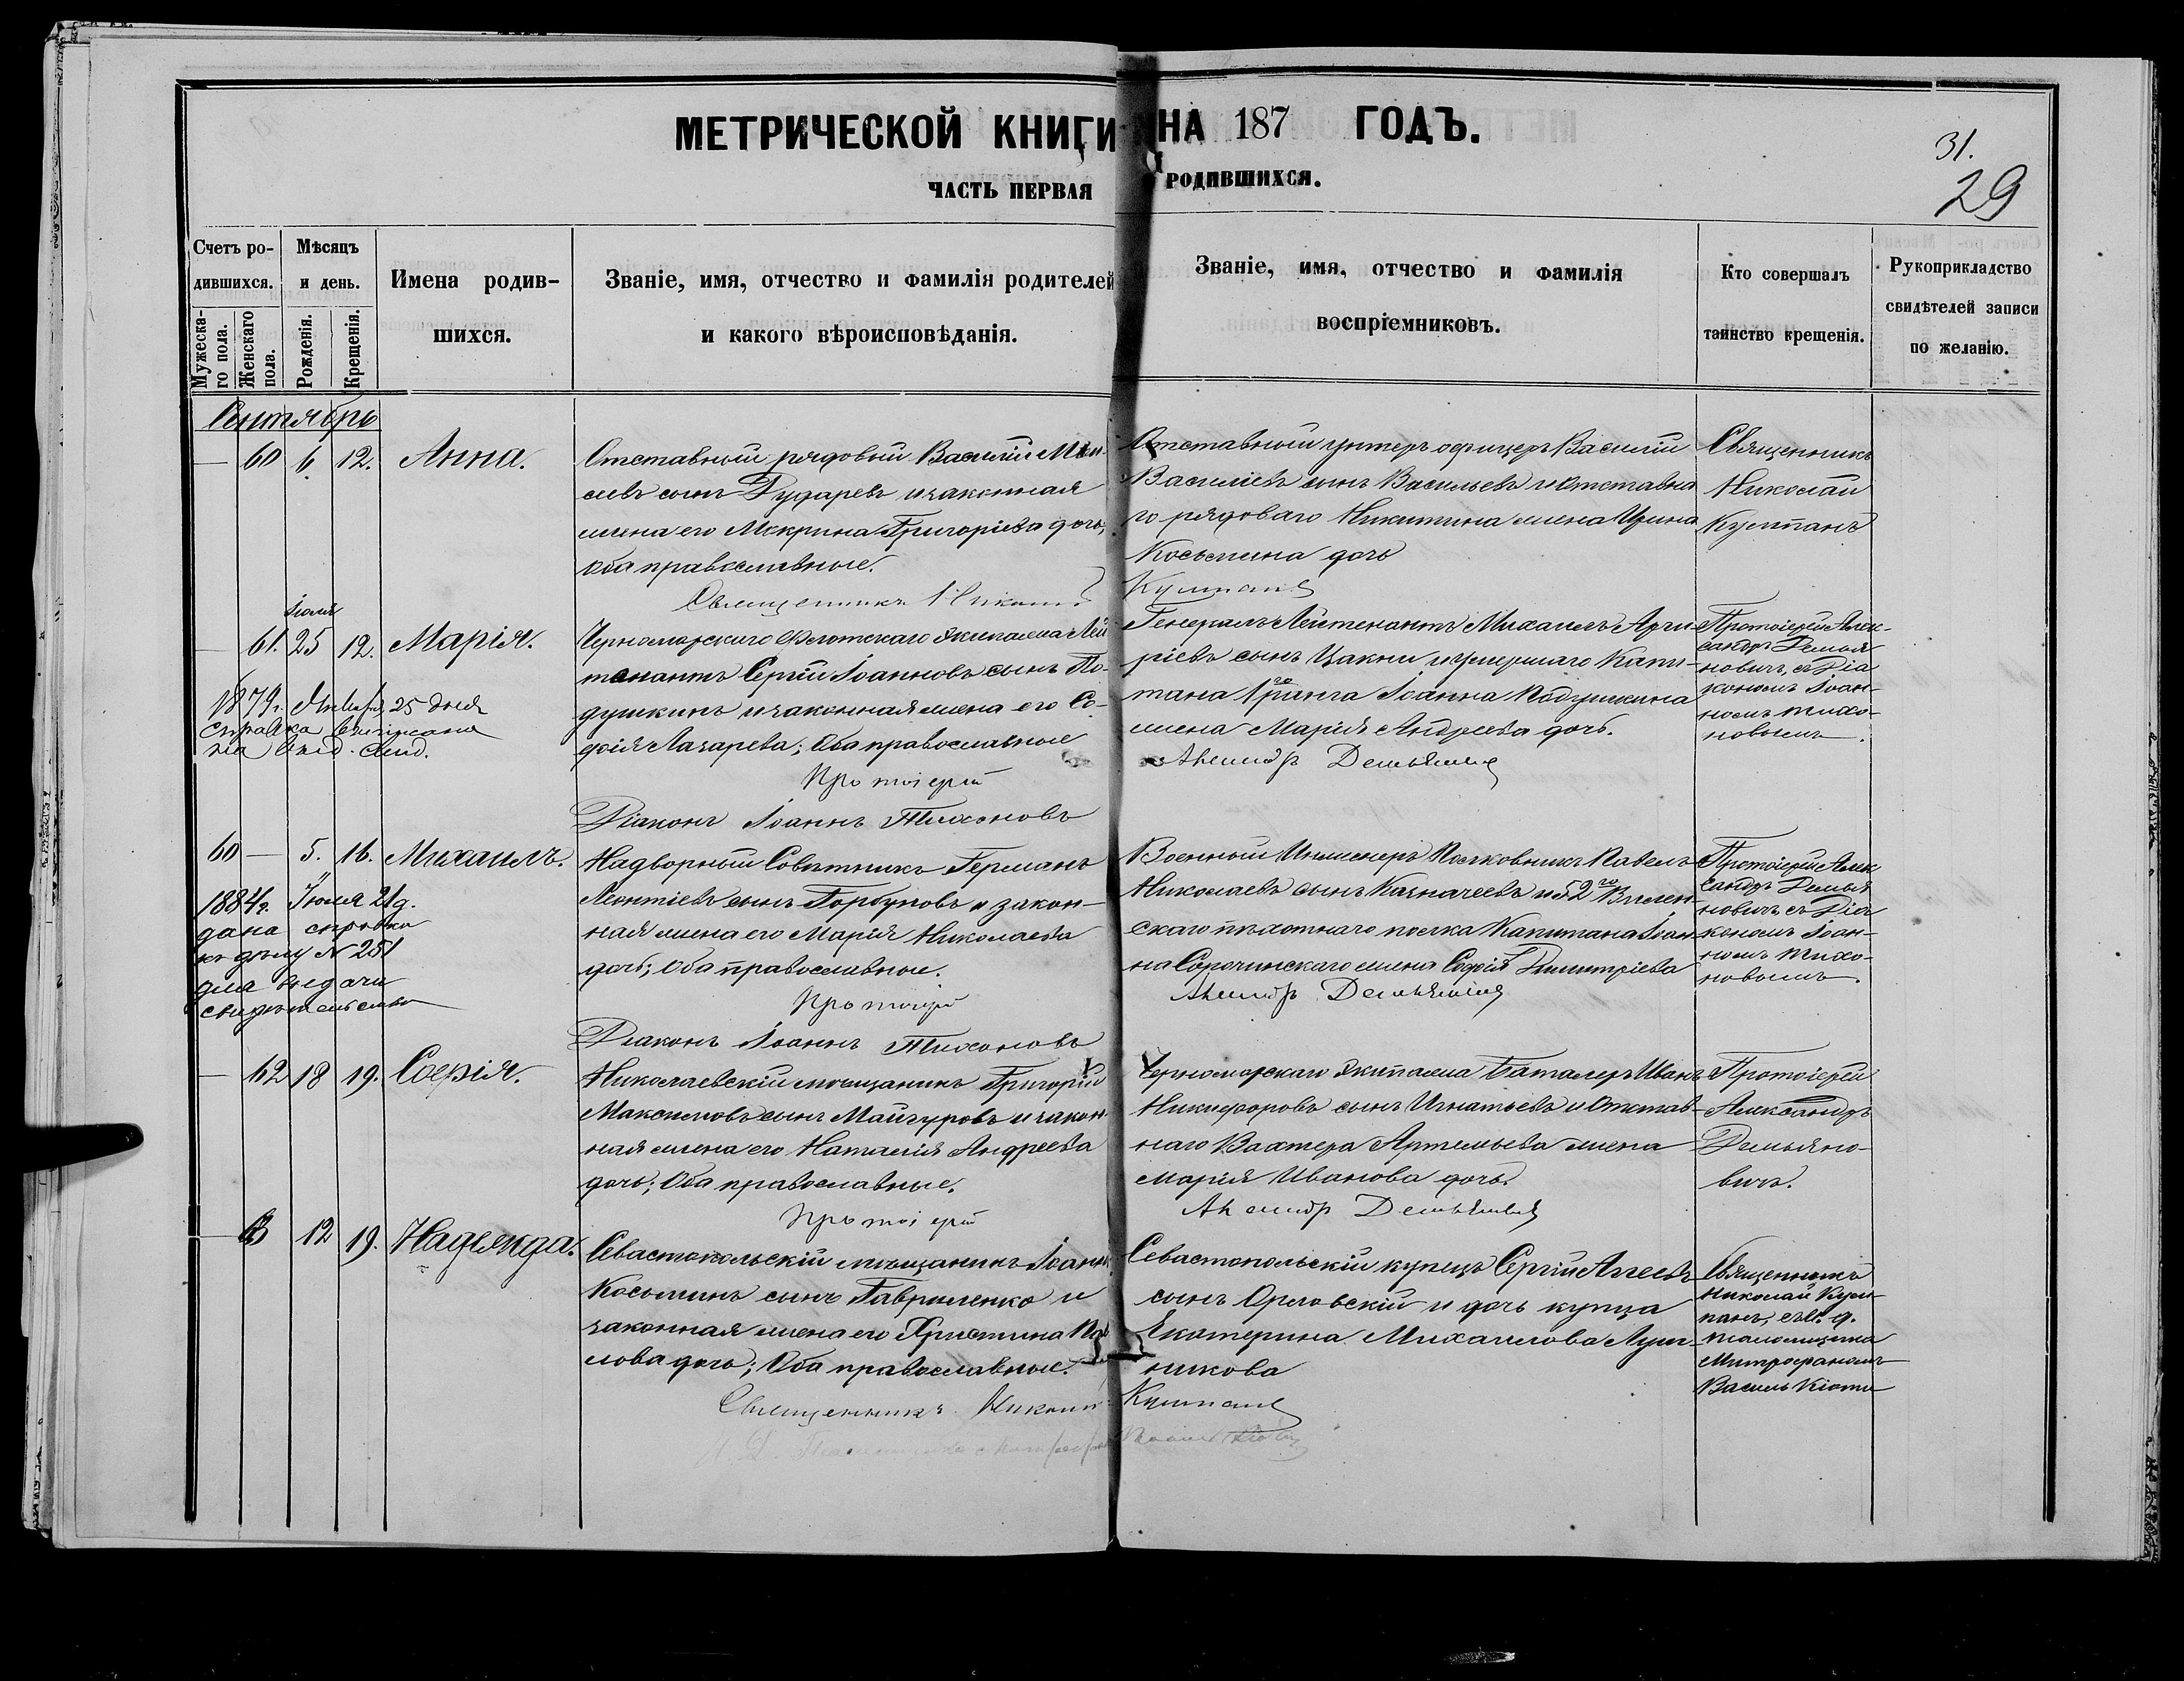 МЕТРИЧЕСКОЙ КНИГИ НА 187 ГОДЪ.
31.
29
ЧАСТЬ ПЕРВАЯ РОДИВШИХСЯ.
Счетъ ро-
дившихся.
Мужеска-
го пола.
Женскаго
пола.
Мѣсяцъ
и день.
Рожденія.
Крещенія.
Имена родив-
шихся.
Званіе, имя, отчество и фамилія родителей
и какого вѣроисповѣданія.
Званіе, имя, отчество и фамилія
воспріемниковъ.
Кто совершалъ
таинство крещенія.
Рукоприкладство
свидѣтелей записи
по желанію.
Сентябрь
— 60 6 12. Анна.
Отставный рядовый Василій
сынъ Гударевъ и законная
жена его Макрина Григоріева дочь,
Оба православные.
Священникъ Николай
Отставный унтеръ офицеръ Василій
Василіевъ сынъ Васильевъ и отставна
го рядоваго Никитина жена Ирина
Косьмина дочь
Култанъ
Священникъ
Николай
Култанъ
Іюля
— 61. 25 12. Марія.
1879г. Января 25 дня
справка
Черноморскаго Флотскаго экипажа Лей
тенантъ Сергій Іоанновъ сынъ По-
душкинъ и законная жена его Со-
фія Лазарева; Оба православные
Протоіерей
Діаконъ Іоаннъ Тихоновъ
Генералъ Лейтенантъ Михаилъ
ріевъ сынъ Цакни и умершаго Капи-
тана 1го ранга Іоанна Подушкина
жена Марія Андреева дочь.
Александръ Демьяновичъ
Протоіерей Алек-
сандръ Демья
новичъ, съ Діа
кономъ Іоан-
номъ Тихо-
новымъ.
60 — 5. 16. Михаилъ.
1884г. Іюля 21 д.
дана справка
къ дѣлу № 251
для выдачи
свидѣтельства
Надворный Совѣтникъ Германъ
Леонтіевъ сынъ Горбуновъ и закон-
ная жена его Марія Николаева
дочь; Оба православные.
Протоіерей
Діаконъ Іоаннъ Тихоновъ
Военный Инженеръ Полковникъ Павелъ
Николаевъ сынъ Казначеевъ и 52го Вилен-
скаго пѣхотнаго полка Капитана Іоан-
на Сорочинскаго жена Софія Димитріева
Александръ Демьяновичъ
Протоіерей Алек
сандръ Демья
новичъ съ Діа
кономъ Іоан-
номъ Тихо-
новымъ.
— 62 18 19. Софія.
Николаевскій мѣщанинъ Григорій
Максимовъ сынъ Майзуровъ и закон
ная жена его Наталія Андреева
дочь; Оба православные.
Протоіерей
Черноморскаго экипажа Баталеръ Иванъ
Никифоровъ сынъ Игнатьевъ и Отстав-
наго Вахтера Артемьева жена
Марія Иванова дочь.
Александръ Демьяновичъ
Протоіерей
Александръ
Демьяно-
вичъ.
— 63 12 19. Надежда.
Севастопольскій мѣщанинъ Іоаннъ
Косьминъ сынъ Гавриленко и
законная жена его Христина Пав
лова дочь; Оба православные.
Священникъ Николай
Севастопольскій купецъ Сергій Агеевъ
сынъ Орловскій и дочь купца
Екатерина Михаилова
никова
Култанъ
Священникъ
Николай Кул
танъ, съ И. д.
псаломщика
Митрофаномъ